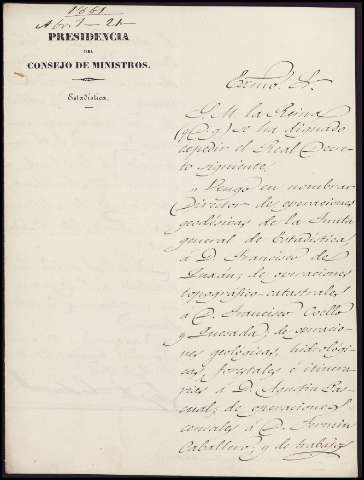 1861
Abril - 21
PRESIDENCIA
DEL
CONSEJO DE MINISTROS.
Estadística.
Excmo. Sr.
S. M. la Reina
(q. D. g.) se ha dignado
expedir el Real Decre-
to siguiente.
"Vengo en nombrar
Director de operaciones
geodésicas de la Junta
general de Estadística
á D. Francisco de
Luxán; de operaciones
topográfico-catastrales
á D. Francisco Coello
y Quesada; de operacio-
nes geológicas, hidrológi-
cas, forestales é itinera-
rias á D. Agustin Pas-
cual; de operaciones
censales á D. Fermin
Caballero; y de trabajos